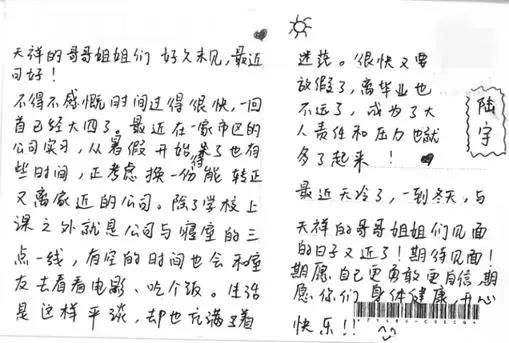 天祥的哥哥姐姐们 好久未见,最近
可好!
不得不感慨时间过得很快,一回
首已经大四了。最近在一家市区的
公司实习,从暑假开始了也有
些时间,正考虑换一份能转正
又离家近的公司。除了学校上
课之外就是公司与寝室的三
点一线,有空的时间也会和室
友去看看电影、吃个饭。生活
是这样平淡,却也充满了着
迷茫。很快又要
放假了,离毕业也
不远了,成为了大
人责任和压力也就
多了起来!
陆
宇
最近天冷了,一到冬天,与
天祥的哥哥姐姐们见面
的日子又近了!期待见面!
期愿自己更勇敢更自信,期
愿你们身体健康,开心
快乐!!